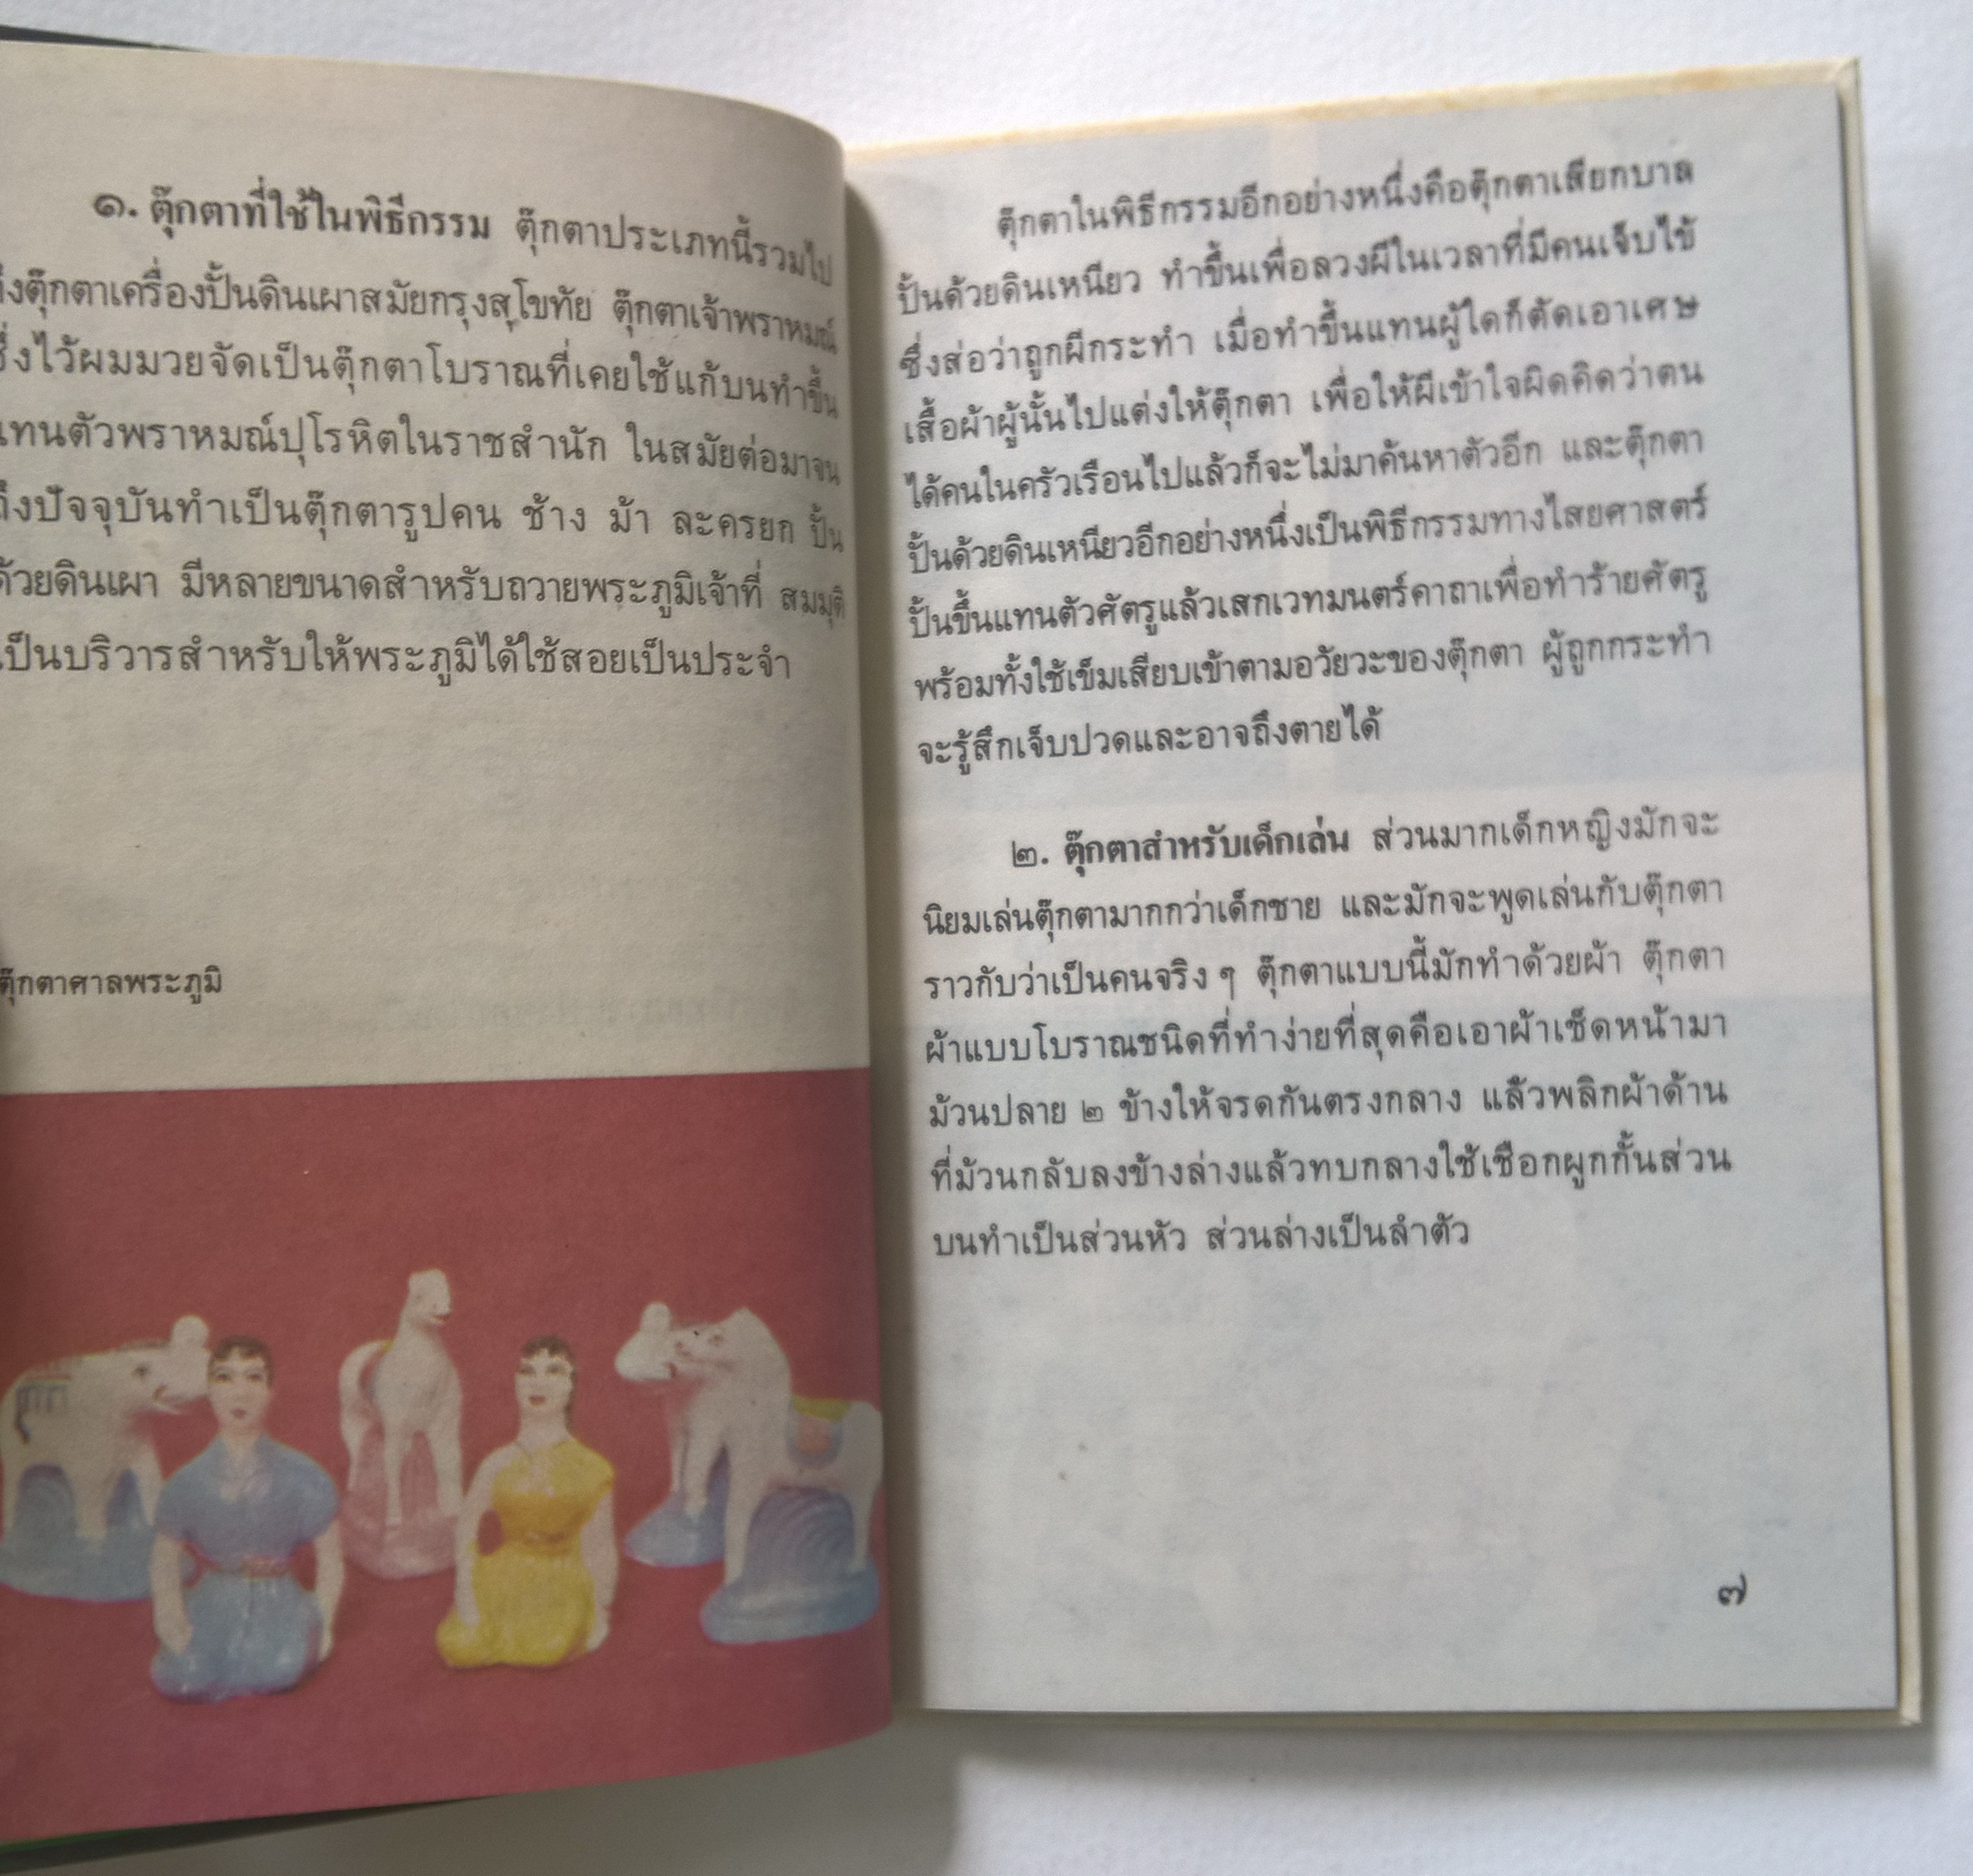 ๑. ตุ๊กตาที่ใช้ในพิธีกรรม ตุ๊กตาประเภทนี้รวมไป
ถึงตุ๊กตาเครื่องปั้นดินเผาสมัยกรุงสุโขทัย ตุ๊กตาเจ้าพราหมณ์
ซึ่งไว้ผมมวยจัดเป็นตุ๊กตาโบราณที่เคยใช้แก้บนทำขึ้น
แทนตัวพราหมณ์ปุโรหิตในราชสำนัก ในสมัยต่อมาจน
ถึงปัจจุบันทำเป็นตุ๊กตารูปคน ช้าง ม้า ละครยก ปั้น
ด้วยดินเผา มีหลายขนาดสำหรับถวายพระภูมิเจ้าที่ สมมุติ
เป็นบริวารสำหรับให้พระภูมิได้ใช้สอยเป็นประจำ
ตุ๊กตาศาลพระภูมิ
ตุ๊กตาในพิธีกรรมอีกอย่างหนึ่งคือตุ๊กตาเสียกบาล
ปั้นด้วยดินเหนียว ทำขึ้นเพื่อลวงผีในเวลาที่มีคนเจ็บไข้
ซึ่งส่อว่าถูกผีกระทำ เมื่อทำขึ้นแทนผู้ใดก็ตัดเอาเศษ
เสื้อผ้าผู้นั้นไปแต่งให้ตุ๊กตา เพื่อให้ผีเข้าใจผิดคิดว่าตน
ได้คนในครัวเรือนไปแล้วก็จะไม่มาค้นหาตัวอีก และตุ๊กตา
ปั้นด้วยดินเหนียวอีกอย่างหนึ่งเป็นพิธีกรรมทางไสยศาสตร์
ปั้นขึ้นแทนตัวศัตรูแล้วเสกเวทมนตร์คาถาเพื่อทำร้ายศัตรู
พร้อมทั้งใช้เข็มเสียบเข้าตามอวัยวะของตุ๊กตา ผู้ถูกกระทำ
จะรู้สึกเจ็บปวดและอาจถึงตายได้
๒. ตุ๊กตาสำหรับเด็กเล่น ส่วนมากเด็กหญิงมักจะ
นิยมเล่นตุ๊กตามากกว่าเด็กชาย และมักจะพูดเล่นกับตุ๊กตา
ราวกับว่าเป็นคนจริง ๆ ตุ๊กตาแบบนี้มักทำด้วยผ้า ตุ๊กตา
ผ้าแบบโบราณชนิดที่ทำง่ายที่สุดคือเอาผ้าเช็ดหน้ามา
ม้วนปลาย ๒ ข้างให้จรดกันตรงกลาง แล้วพลิกผ้าด้าน
ที่ม้วนกลับลงข้างล่างแล้วทบกลางใช้เชือกผูกกั้นส่วน
บนทำเป็นส่วนหัว ส่วนล่างเป็นลำตัว
๗